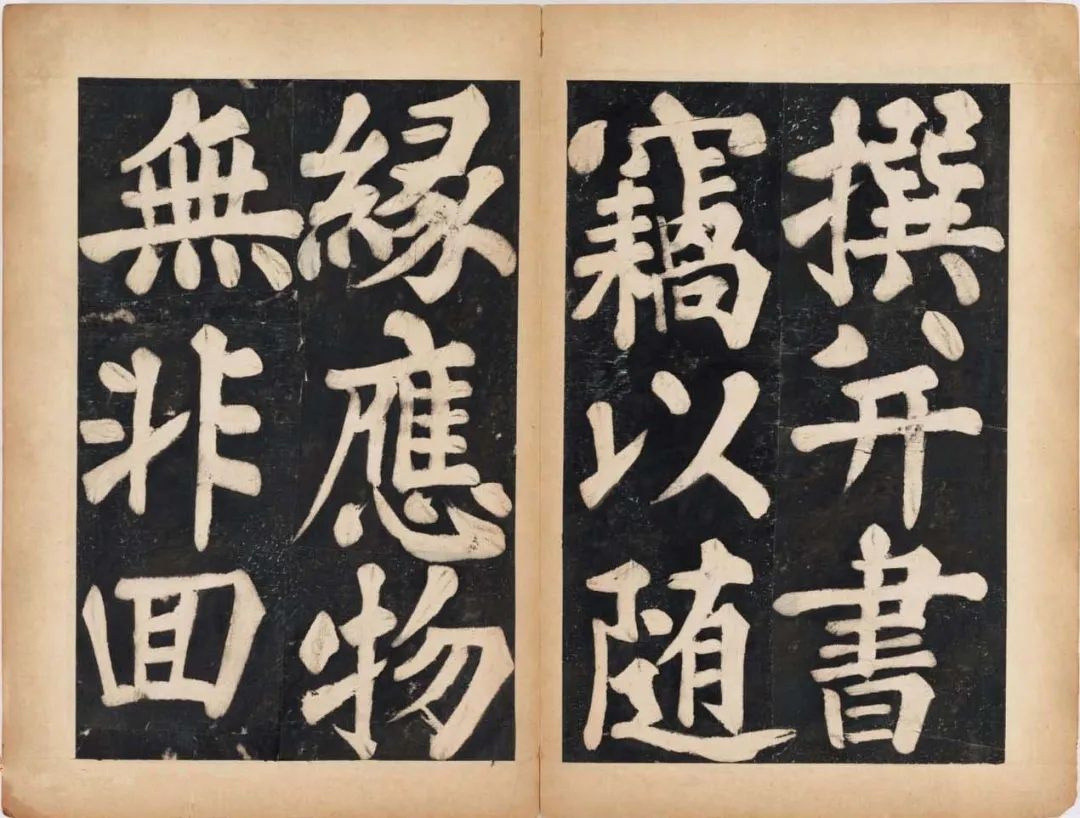 撰并書
竊以随
縁應物
無非回